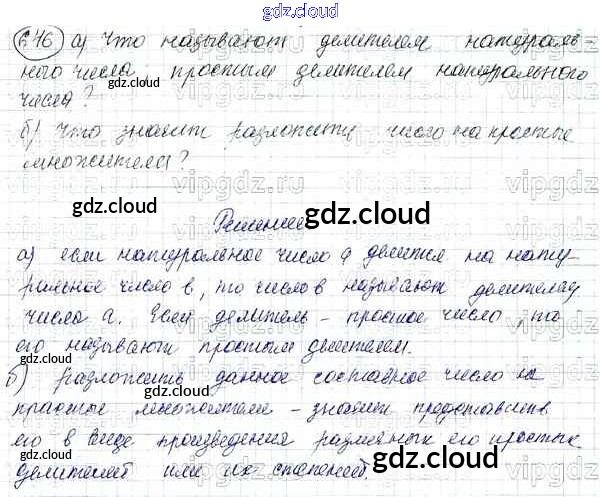 gdz.cloud
646 а) Что называют делителем натураль-
ного числа простым делителем натурального
числа?
gdz.cloud
б) Что значит разложить число на простые
множители?
gdz.cloud
Решение
gdz.cloud
а) если натуральное число a делится на нату-
ральное число в, то число в называют делителем
числа а. Если делитель - простое число, то
его называют простым делителем.
б) Разложить данное составное число на
простые множители - значит представить
его в виде произведения различных его простых
делителей или их степеней.
gdz.cloud